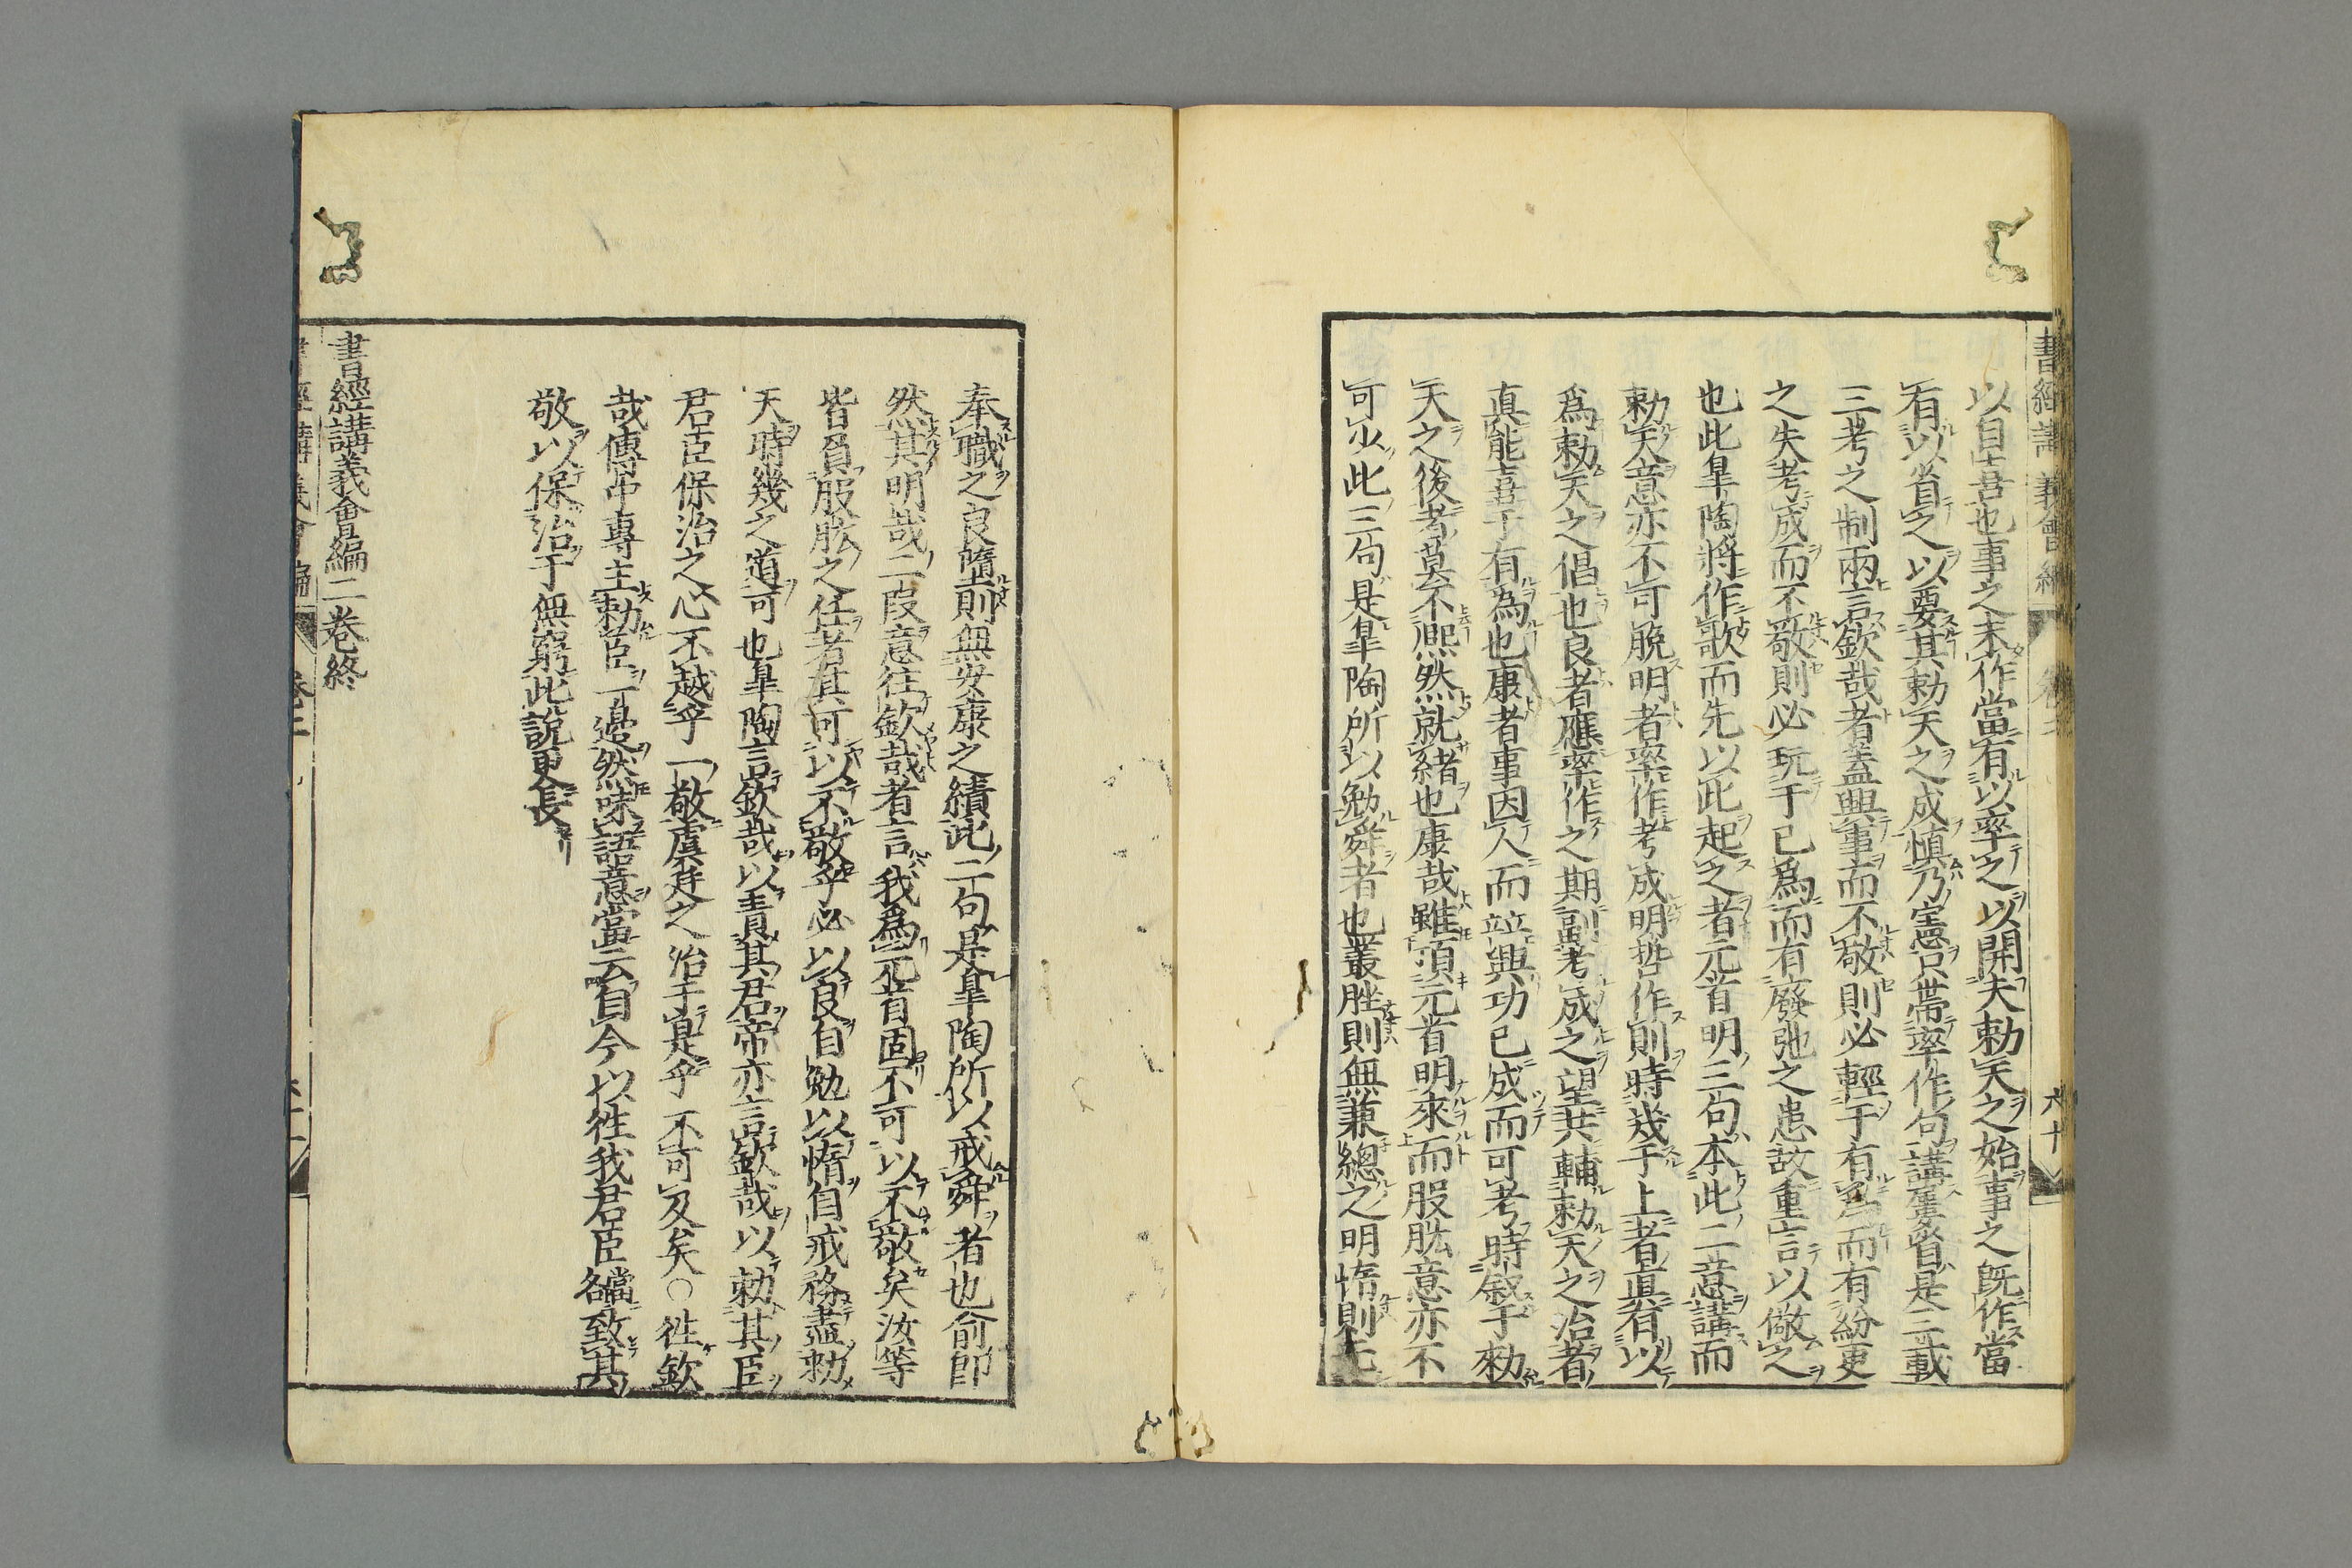 書經講義會編
卷二
六十
以自喜也事之未作當有以率之以開夫勅天之始事之既作當
有以省之以要其勅天之成慎乃憲只帶率作句講屢省是三載
三考之制兩言欽哉者蓋興事而不敬則必輕于有爲而有紛更
之失考成而不敬則必玩于已爲而有廢弛之患故重言以儆之
也此皐陶將作歌而先以此起之者元首明三句本此二意講而
勅天意亦不可脫明者率作考成明哲作則時幾于上者眞有以
爲勅天之倡也良者應率作之期副考成之望共輔勅天之治者
眞能喜于有為也康者事因人而竝興功已成而可考時叙于勅
天之後者莫不熈然就緒也康哉雖頂元首明來而股肱意亦不
可少此三句是皐陶所以勉舜者也叢脞則無兼總之明惰則无
奉職之良墮則無安康之績此二句是皐陶所以戒舜者也俞卽
然其明哉二叚意往欽哉者言我爲元首固不可以不敬矣汝等
皆負股肱之任者其可以不敬乎必以良自勉以惰自戒務盡勅
天時幾之道可也皐陶言欽哉以責其君帝亦言欽哉以勅其臣
君臣保治之心不越乎一敬虞廷之治于是乎不可及矣○徃欽
哉傳中專主勅臣一邊然味語意當云自今以徃我君臣各當致其
敬以保治于無窮此說更長
書經講義會編二卷終
書經講義會編
卷二